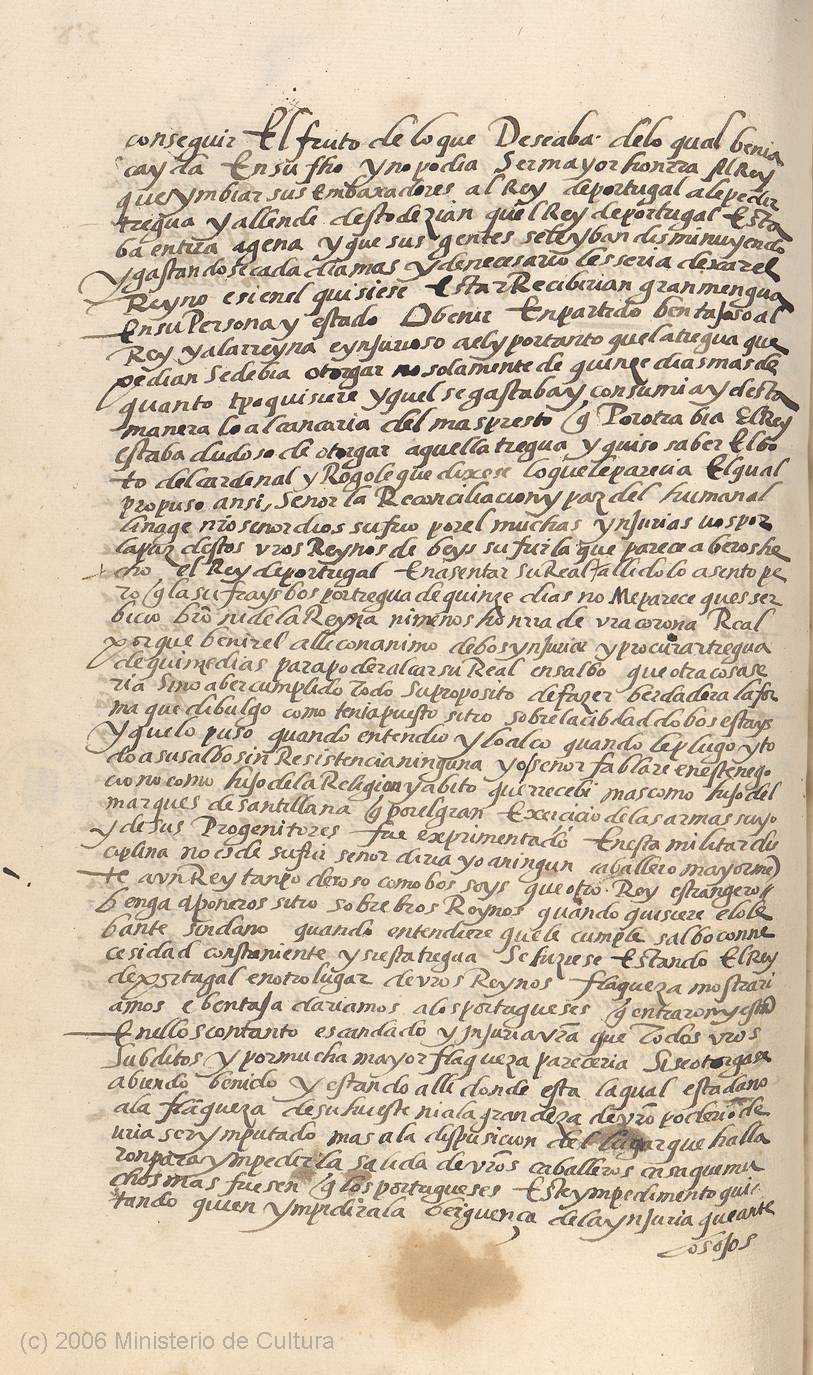 conseguir El fruto de lo que Deseaba. delo qual benia
cayda En su fho y no podia Ser mayor honrra Al Rey
que ymbiar sus Embaxadores al Rey deportugal alepedir
tregua y allende desto dezian quel Rey de portugal Esta
ba entrra agena y que sus gentes seleyban disminuyendo
y gastandose cada dia mas y de necesario les seria dexar el
Reyno e si enel quisiese Estar Recibirian gran mengua
En su Persona y estado O benir En partido bentajoso al
Rey y ala rreyna e ynjurioso a el y portanto quela tregua que
pedian Se debia otorgar no solamente de quinze dias mas de
quanto tpo quisiere y quel se gastaba y consumia y desta
manera lo alcancaria del mas presto q Por otra bia El Rey
estaba dudoso de otorgar aquella tregua y quiso saber El bo
to del cardenal y Rogole que dixese lo que le parecia El qual
propuso ansi, Senor la Reconciliacion y paz del humanal
linage nro senor dios sufrio por el muchas ynjurias vos por
la paz destos vros Reynos debeys sufrir la que parece aberos he
cho el Rey de portugal En asentar su Real alli do lo asento pe
ro q la sufrays bos por tregua de quinze dias no Me parece ques ser
bicio bro ni dela Reyna ni menos honrra de vra corona Real
porque benir el alli con animo de bos ynjuriar y procurar tregua
de quinze dias para poder alcar su Real en salbo que otra cosa se
ria Sino aber cumplido Todo Su proposito de fazer berdadera la for
ma que dibulgo como tenia puesto sitio sobre la cibdad do bos estays
y que lo puso quando entendio y lo alco quando le plugo y to
do a su salbo sin Resistencia ninguna yo senor fablare en este nego
cio no como hijo dela Religion y abito que rrecebi mas como hijo del
marques de santillana q por el gran Exercicio de las armas suyo
y de sus Progenitores fue exprimentado En esta militar dis
ciplina no es de sufrir senor diria yo a ningun caballero mayorme
te a vn Rey tan poderoso como bos soys que otro Rey estrangero
benga a poneros sitio sobre bros Reynos quando quisiere e lo le
bante sin dano quando entendiere que le cumple salbo con ne
cesidad constriniente y si esta tregua Se hiziese Estando El Rey
de portugal en otro lugar de vros Reynos flaqueza mostrari
amos e bentaja dariamos a los portugueses q entraron y estan
En ellos con tanto escandado y ynjuria vra que Todos vros
Subditos y por mucha mayor flaqueza pareceria Si se otorgase
abiendo benido y estando alli donde esta la qual estada no
ala flaqueza de su hueste ni ala grandeza de vro poderio de
uria ser ymputado mas a la dispusicion del lugar que halla
ron para ympedir la salida de vros caballeros casa que mu
chos mas fuesen q los portugueses Este ympedimento qui
tando quien ympedira la berguenca dela ynjuria que ante
los ojos
(c) 2006 Ministerio de Cultura